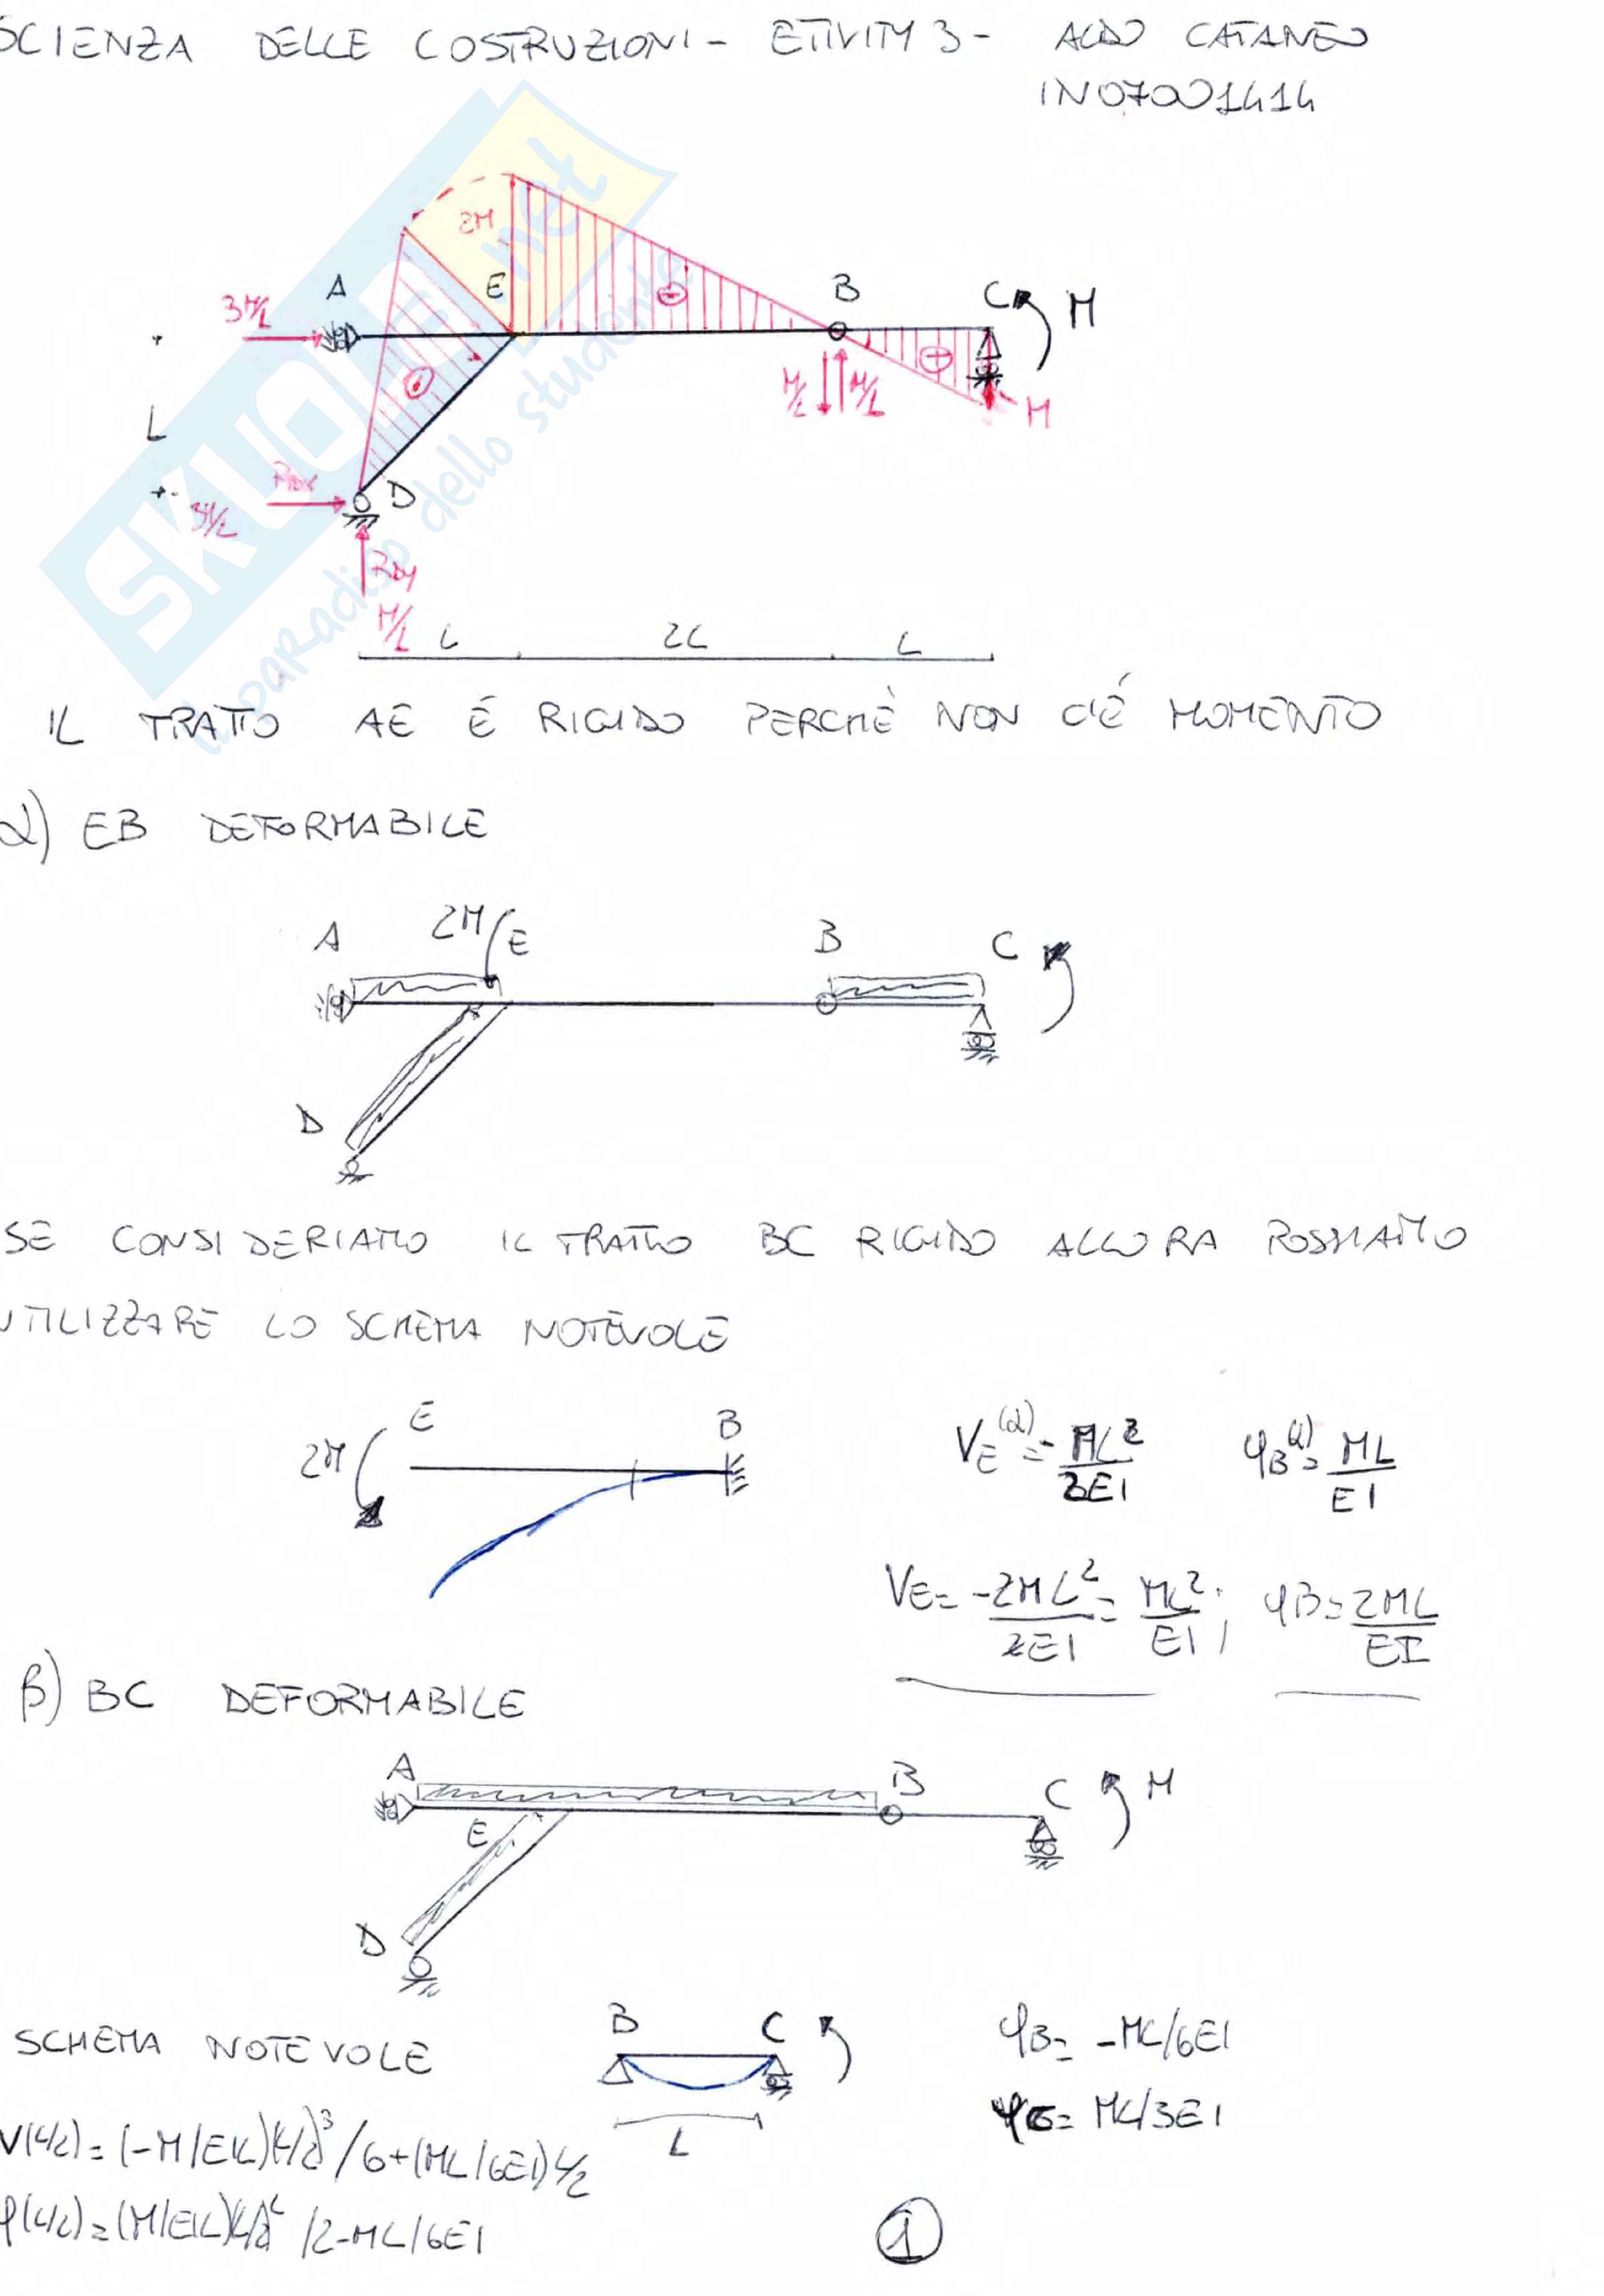 SCIENZA DELLE COSTRUZIONI - ETIVITY 3 - ALDO CATANEO
IN07001414
2M
A E B C M
3M/L
L
M/L M/L M
D
3M/L
RDY
M/L
L 2L L
SKUOLA.net
il paradiso dello studente
IL TRATTO AE É RIGIDO PERCHÈ NON C'É MOMENTO
α) EB DEFORMABILE
A 2M E B C
D
SE CONSIDERIAMO IL TRATTO BC RIGIDO ALLORA POSSIAMO
UTILIZZARE LO SCHEMA NOTEVOLE
2M E B
VE(α) = - ML²/2EI φB(α) = ML/EI
VE = -2ML²/2EI = ML²/EI ; φB = 2ML/EI
β) BC DEFORMABILE
A B C M
E
D
SCHEMA NOTEVOLE
B C
L
φB = -ML/6EI
φC = ML/3EI
V(L/2) = (-M/EIL)(L/2)³/6+(ML/6EI)L/2
φ(L/2) = (M/EIL)(L/2)²/2-ML/6EI
1